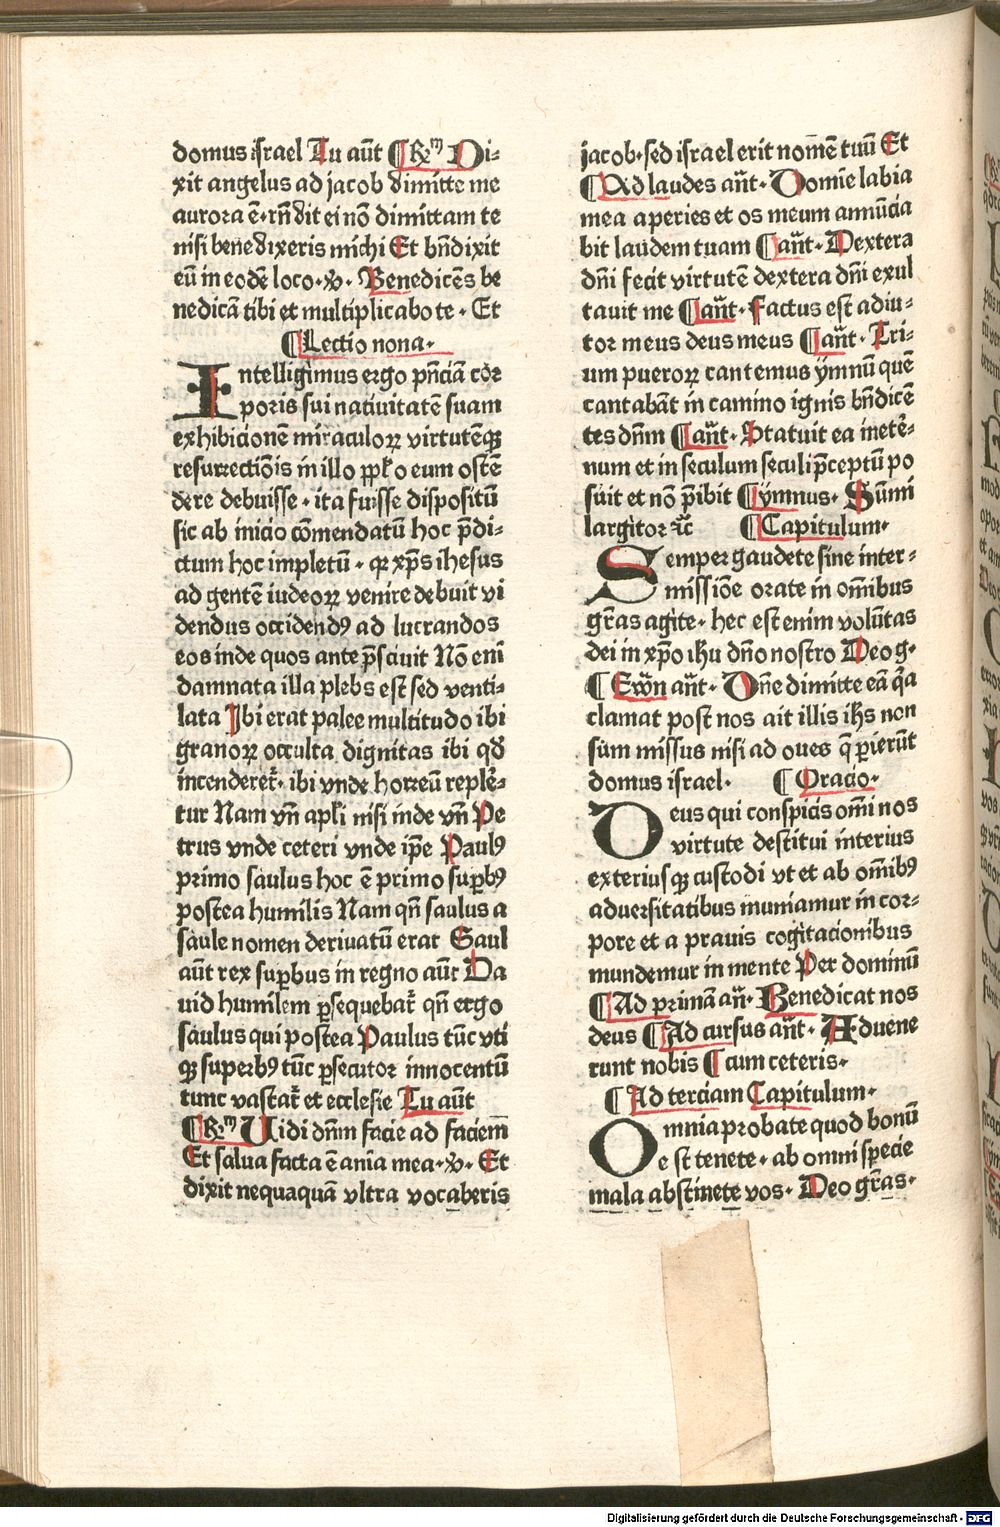 domus israel Tu aūt ¶ R̄m Di⸗
xit angelus ad jacob dimitte me
aurora ē · rn̄dit ei nō dimittam te
nisi benedixeris michi Et bn̄dixit
eū in eodē loco · v̄ · Benedicēs be
nedicā tibi et multiplicabo te · Et
¶ Lectio nona ·
Intelligimus ergo pn̄ciā cōr
poris sui natiuitatē suam
exhibicionē miraculoꝝ virtutēqꝫ
resurrectiōis in illo ppl̄o eum ostē
dere debuisse · ita fuisse dispositū
sic ab inicio cōmendatū hoc p̄di⸗
ctum hoc impletū · qꝛ xp̄s ihesus
ad gentē iudeoꝝ venire debuit vi
dendus occidendꝰ ad lucrandos
eos inde quos ante p̄sciuit Nō eni
damnata illa plebs est sed venti⸗
lata Ibi erat palee multitudo ibi
granoꝝ occulta dignitas ibi qd̄
incenderet̄ · ibi vnde horreū reple⸗
tur Nam vn̄ apl̄i nisi inde vn̄ Pe
trus vnde ceteri vnde ip̄e Paulꝰ
primo saulus hoc ē primo suꝑbꝰ
postea humilis Nam qn̄ saulus a
saule nomen deriuatū erat Saul
aūt rex suꝑbus in regno aūt Da
uid humilem ꝑsequebat̄ qn̄ ergo
saulus qui postea Paulus tūc vti
qꝫ superbꝰ tūc ꝑsecutor innocentū
tunc vastat̄ et ecclesie Tu aūt
¶ R̄m Uidi dn̄m facie ad faciem
Et salua facta ē ania mea · v̄ · Et
dixit nequaquā vltra vocaberis
jacob · sed israel erit nomē tuū Et
¶ Ad laudes an̄t · Domīe labia
mea aperies et os meum annūcia
bit laudem tuam ¶ an̄t · Dextera
dn̄i fecit virtutē dextera dn̄i exul
tauit me ¶ an̄t · Factus est adiu⸗
tor meus deus meus ¶ an̄t · Tri⸗
um pueroꝝ cantemus ymnū quē
cantabāt in camino ignis bn̄dicē
tes dn̄m ¶ an̄t · Statuit ea in etē⸗
num et in seculum seculi p̄ceptū po
suit et nō p̄ibit ¶ Ymnus · Sūmi
largitor ꝛc̄ ¶ Capitulum ·
Semper gaudete sine inter⸗
missiōe orate in om̄ibus
gr̄as agite · hec est enim volūtas
dei in xp̄o ih̄u dn̄o nostro Deo g ·
¶ Ewn̄ an̄t · Dn̄e dimitte eā q̄a
clamat post nos ait illis ih̄s non
sum missus nisi ad oues q̄ ꝑierūt
domus israel · ¶ Oracio ·
Deus qui conspicis om̄i nos
virtute destitui interius
exteriusqꝫ custodi vt et ab om̄ibꝰ
aduersitatibus muniamur in cor⸗
pore et a prauis cogitacionibus
mundemur in mente Per dominū
¶ Ad pͥmā an̄ · Benedicat nos
deus ¶ Ad cursus an̄t · Aduene
runt nobis ¶ cum ceteris ·
¶ Ad terciam Capitulum ·
Omnia probate quod bonū
est tenete · ab omni specie
mala abstinete vos · Deo gr̄as ·
Digitalisierung gefördert durch die Deutsche Forschungsgemeinschaft - DFG